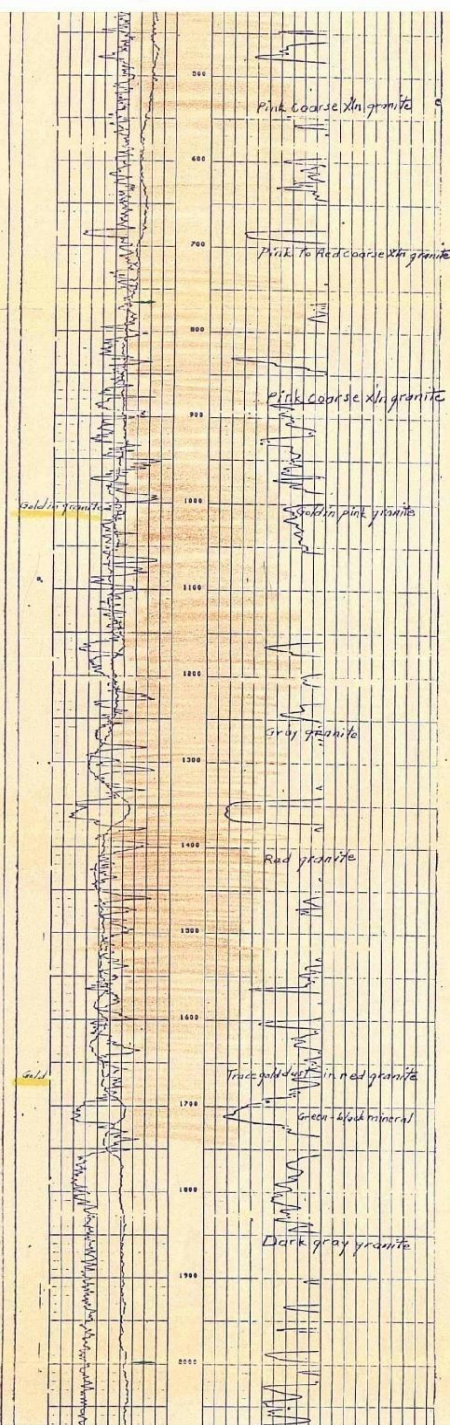 500
Pink Coarse Xln granite
600
700
Pink to Red coarse Xln granite
800
Pink Coarse Xln granite
900
1000
Gold in granite
Gold in pink granite
1100
1200
Gray granite
1300
1400
Red granite
1500
1600
Gold
Trace gold dust in red granite
1700
Green-black mineral
1800
Dark gray granite
1900
2000